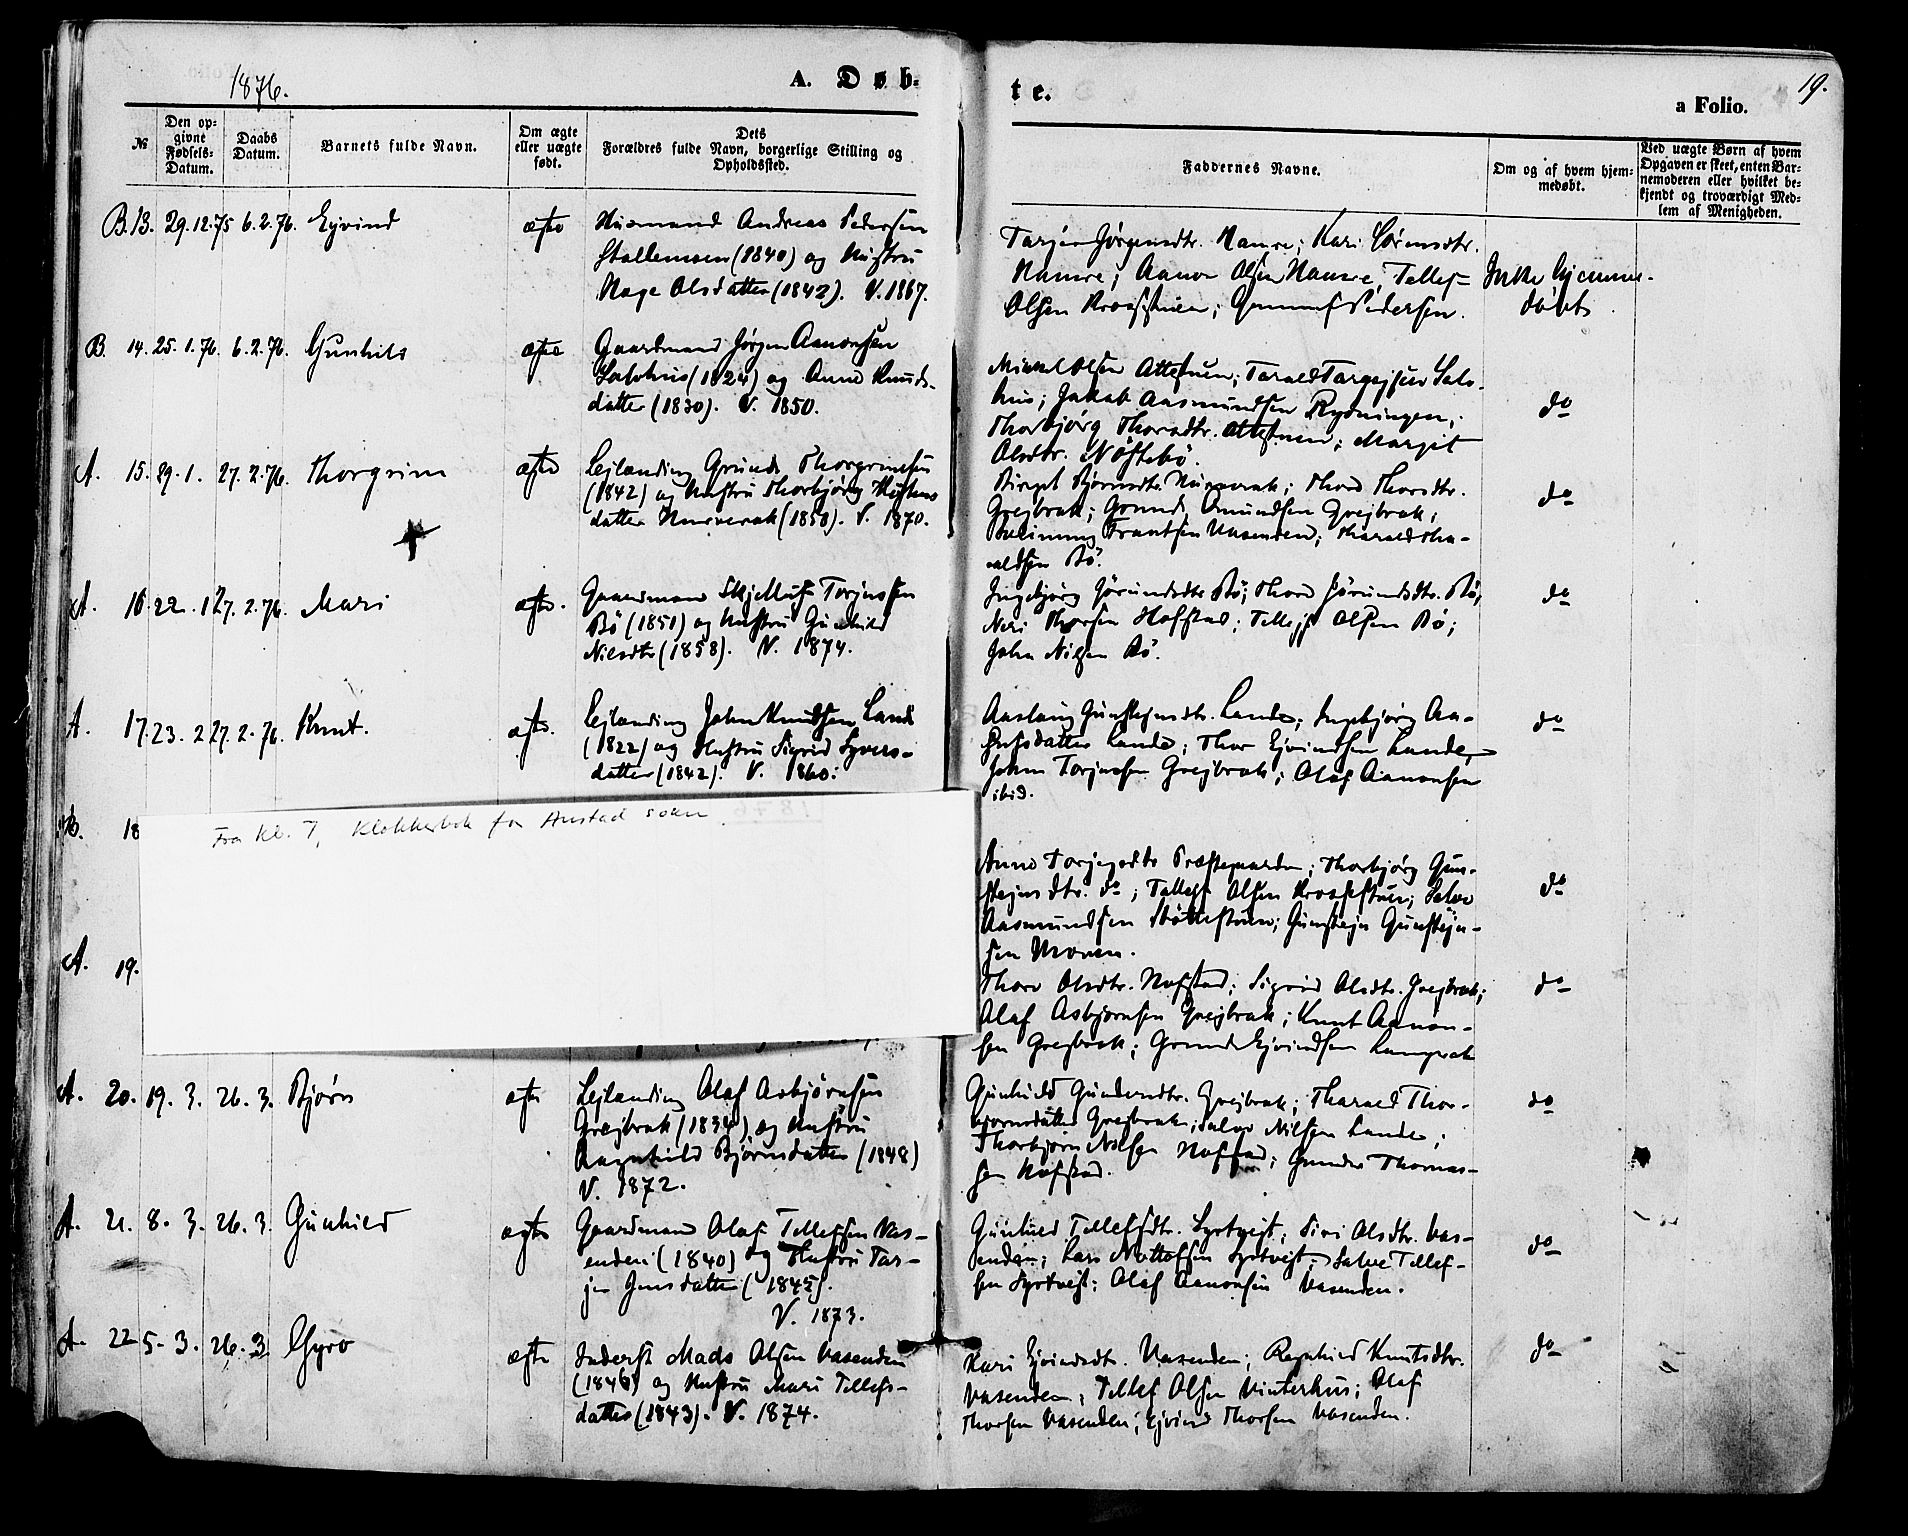 1876.
A. Døb-
te.
19.
a Folio.
№
Den op-
givne
Fødsels-
Datum.
Daabs
Datum.
Barnets fulde Navn.
Om ægte
eller uægte
født.
Dets
Forældres fulde Navn, borgerlige Stilling og
Opholdssted.
Faddernes Navne.
Om og af hvem hjem-
medøbt.
Ved uægte Børn af hvem
Opgaven er skeet, enten Bar-
nemoderen eller hvilket be-
kjendt og troværdigt Med-
lem af Menigheden.
B. 13. 29.12.75 6.2.76. Ejvind ægte Husmand Andreas Pedersen
Stallemoen (1840) og Hustru
Aage Olsdatter (1842). V. 1867.
Tarjer Jørgensdtr. Namre; Kari Sørensdtr.
Namre; Aanon Olsen Namre; Tellef
Olsen Kroassstuen; Gunnuf Pedersen.
Ikke hjemme-
døbt
B. 14. 25.1.76. 6.2.76. Gunhild ægte Gaardmand Jørgen Aanonsen
Salvhus (1824) og Anne Knuds-
datter (1830). V. 1850.
Mikkel Olsen Attestuen; Tarald Targejsen Salv-
hus; Jakob Aasmundsen Rysningen;
Thorbjørg Thorsdtr. Attestuen; Margit
Olsdtr. Nøstebø.
do
A. 15. 29.1. 27.2.76. Thorgrim ægte Lejlænding Grunde Thorgrimsen
(1842) og Hustru Thorbjørg
datter Nurverak (1850). V. 1870.
Birgit Bjørnsdtr. Nurverak; Thore Thorsdtr.
Grejbrok; Grunde Omundsen Grejbrok;
Frantsen Vasenden; Tharald Tha-
raldsen Bø.
do
A. 16. 22.1 27.2.76. Mari ægte. Gaardmand Skjelluf Torjussen
Bø (1851) og Hustru Gunhild
Nilsdtr (1858). V. 1874.
Ingebjørg Jørundsdtr Bø; Thore Jørundsdtr. Bø;
Neri Thorsen Hofstad; Tellef Olsen Bø;
John Nilsen Bø.
do
A. 17. 23.2 27.2.76. Knut. ægte. Lejlænding John Knudsen Lande
(1822) og Hustru Sigrid Syvers-
datter (1842). V. 1860.
Aaslaug Gunstejnsdtr. Lande; Ingebjørg Aa-
nufsdatter Lande; Thor Ejvindsen Lande,
John Torjussen Grejbrok; Olaf Aanonsen
ibid.
do
Fra kl. 7, Klokkerbok for Austad sokn.
B. 18
Anne Torjusdtr Præstegaarden; Thorbjørg Gun-
stejnsdtr. do; Tellef Olsen Kroassstuen; Salve
Aasmundsen Støttestuen; Gunstejn Gunstejn-
sen Moen.
do
A. 19.
Thore Olsdtr. Hofstad; Sigrid Olsdtr. Grejbrok;
Olaf Asbjørnsen Grejbrok; Knut Aanon-
sen Grejbrok; Grunde Ejvindsen Langerak
do
A. 20. 19.3. 26.3. Bjørn ægte Lejlænding Olaf Asbjørnsen
Grejbrok (1834) og Hustru
Ragnhild Bjørnsdatter (1848)
V. 1872.
Gunhild Gundersdtr. Grejbrok; Tharald Thor-
bjørnsdatter Grejbrok; Salve Nilsen Lande;
Thorbjørn Nilsen Hofstad; Gunder Thomas-
sen Hofstad.
do
A. 21. 8.3. 26.3. Gunhild ægte Gaardmand Olaf Tellefsen Vas-
enden (1840) og Hustru Tar-
jer Jensdatter (1845).
V. 1873.
Gunhild Tellefsdtr. Syrtvejt; Siri Olsdtr. Vas-
enden; Lars Syrtvejt; Salve Tellef-
sen Syrtvejt; Olaf Aanonsen Vasenden.
do
A. 22 5.3. 26.3. Gyro ægte Inderst Mads Olsen Vasenden
(1846) og Hustru Mari Tellefs-
datter (1843). V. 1874.
Kari Ejvindsdtr. Vasenden; Ragnhild Knutsdtr.
Vasenden; Tellef Olsen Vinterhus; Olaf
Thorsen Vasenden; Ejvind Thorsen Vasenden.
do